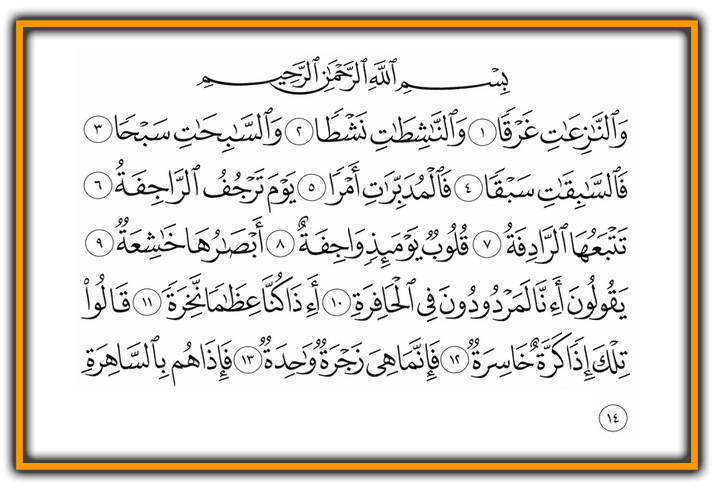 بِسْمِ ٱللَّهِ ٱلرَّحْمَٰنِ ٱلرَّحِيمِ
وَٱلنَّٰزِعَٰتِ غَرْقًا ١ وَٱلنَّٰشِطَٰتِ نَشْطًا ٢ وَٱلسَّٰبِحَٰتِ سَبْحًا ٣
فَٱلسَّٰبِقَٰتِ سَبْقًا ٤ فَٱلْمُدَبِّرَٰتِ أَمْرًا ٥ يَوْمَ تَرْجُفُ ٱلرَّاجِفَةُ ٦
تَتْبَعُهَا ٱلرَّادِفَةُ ٧ قُلُوبٌ يَوْمَئِذٍ وَاجِفَةٌ ٨ أَبْصَٰرُهَا خَٰشِعَةٌ ٩
يَقُولُونَ أَءِنَّا لَمَرْدُودُونَ فِى ٱلْحَافِرَةِ ١٠ أَءِذَا كُنَّا عِظَٰمًا نَّخِرَةً ١١ قَالُوا۟
تِلْكَ إِذًا كَرَّةٌ خَاسِرَةٌ ١٢ فَإِنَّمَا هِىَ زَجْرَةٌ وَٰحِدَةٌ ١٣ فَإِذَا هُم بِٱلسَّاهِرَةِ
١٤